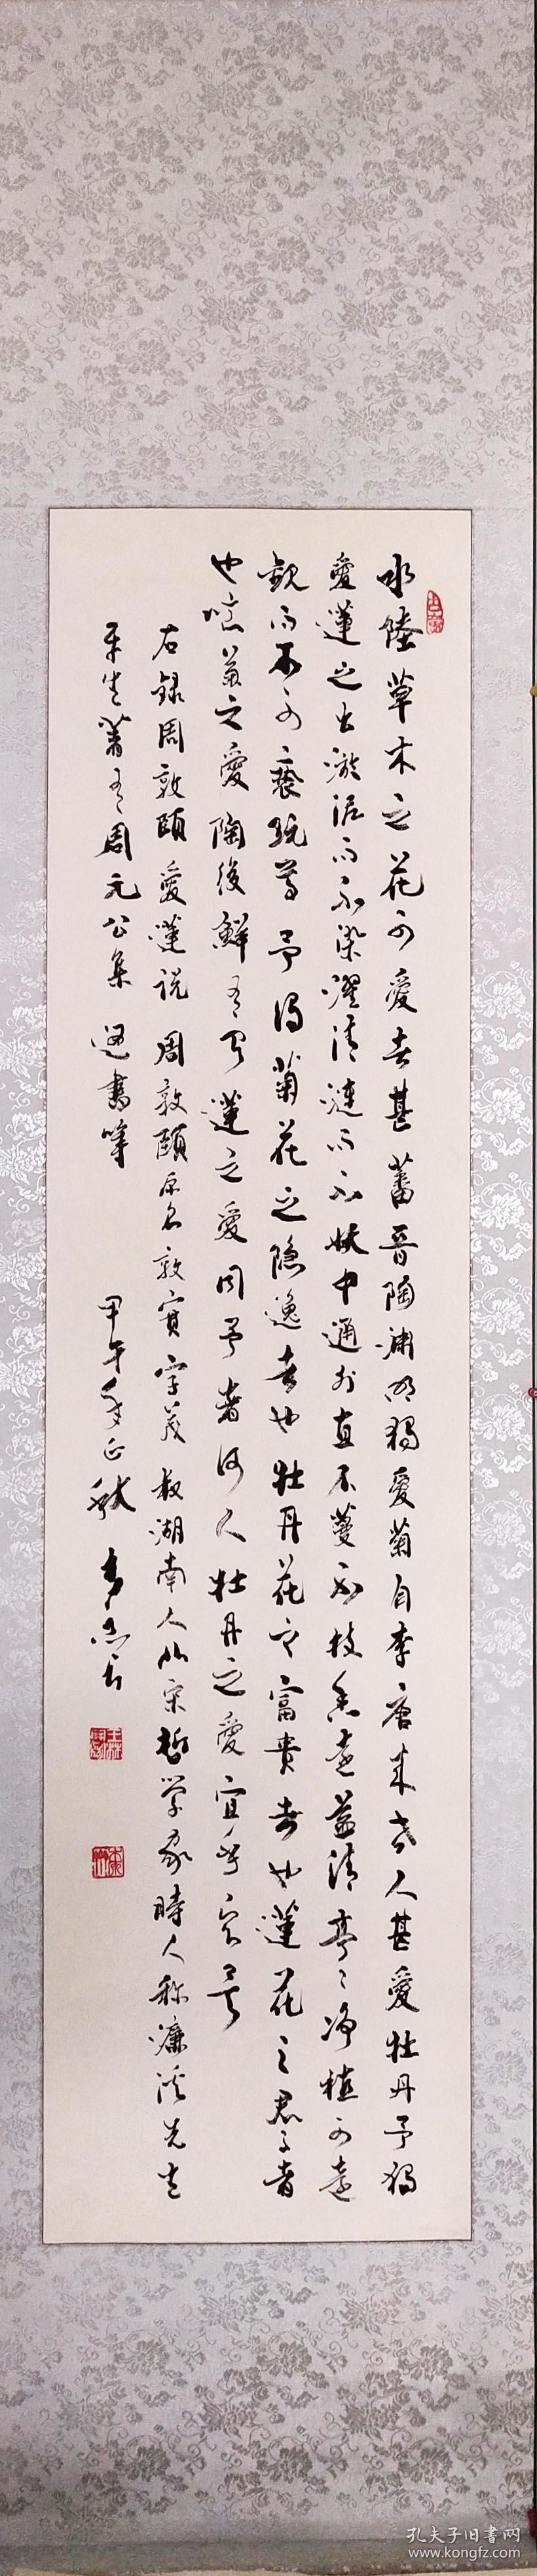 水陸草木之花可愛者甚蕃晉陶淵明獨愛菊自李唐來世人甚愛牡丹予獨
愛蓮之出淤泥而不染濯清漣而不妖中通外直不蔓不枝香遠益清亭亭净植可遠
觀而不可褻玩焉予謂菊花之隐逸者也牡丹花之富貴者也蓮花之君子者
也噫菊之愛陶後鮮有聞蓮之愛同予者何人牡丹之愛宜乎众矣
右録周敦頤愛蓮説 周敦頤原名敦實字茂叔湖南人北宋哲学家時人称濂溪先生
平生著有周元公集 迺書等 甲午年正秋
孔夫子旧书网
www.kongfz.com